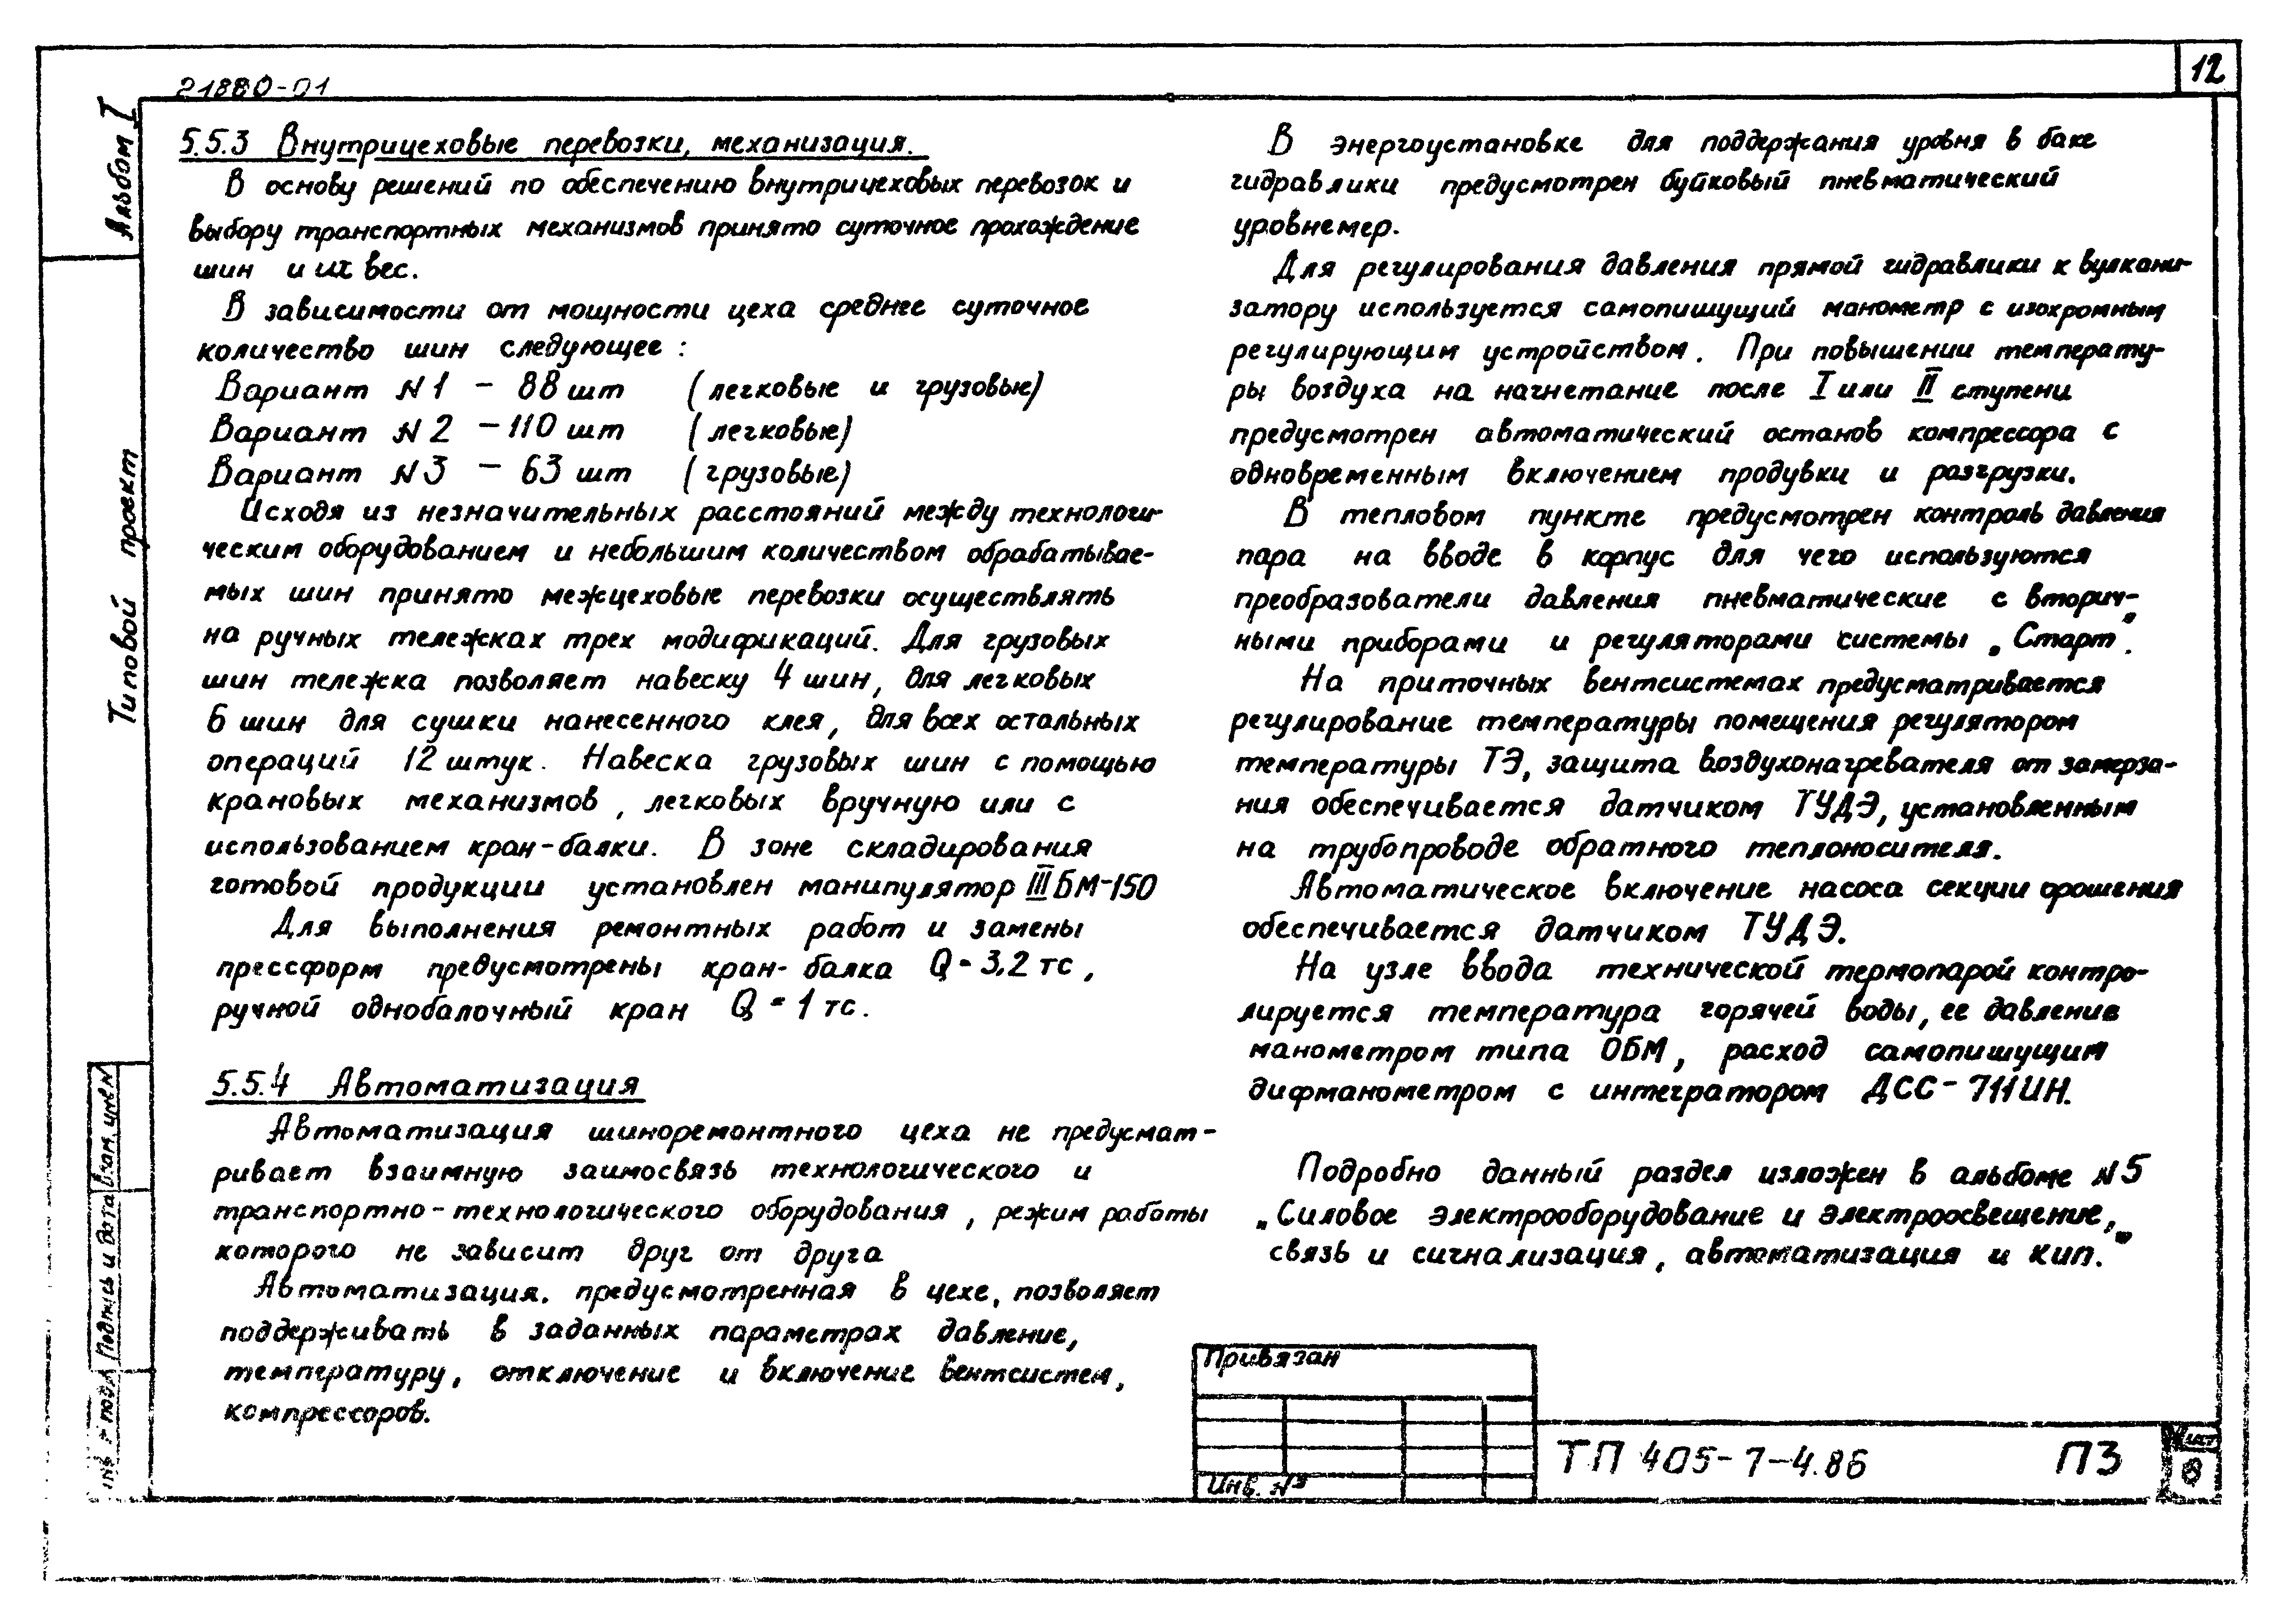 12
21880-01
Альбом I
Типовой проект
5.5.3 Внутрицеховые перевозки, механизация.
В основу решений по обеспечению внутрицеховых перевозок и
выбору транспортных механизмов принято суточное прохождение
шин и их вес.
В зависимости от мощности цеха среднее суточное
количество шин следующее :
Вариант N1 - 88 шт (легковые и грузовые)
Вариант N2 - 110 шт (легковые)
Вариант N3 - 63 шт (грузовые)
Исходя из незначительных расстояний между технологи-
ческим оборудованием и небольшим количеством обрабатывае-
мых шин принято межцеховые перевозки осуществлять
на ручных тележках трех модификаций. Для грузовых
шин тележка позволяет навеску 4 шин, для легковых
6 шин для сушки нанесенного клея, для всех остальных
операций 12 штук. Навеска грузовых шин с помощью
крановых механизмов, легковых вручную или с
использованием кран-балки. В зоне складирования
готовой продукции установлен манипулятор III БМ-150
Для выполнения ремонтных работ и замены
прессформ предусмотрены кран-балка Q = 3,2 тс,
ручной однобалочный кран Q = 1 тс.
5.5.4 Автоматизация
Автоматизация шиноремонтного цеха не предусмат-
ривает взаимную заимосвязь технологического и
транспортно-технологического оборудования, режим работы
которого не зависит друг от друга
Автоматизация, предусмотренная в цехе, позволяет
поддерживать в заданных параметрах давление,
температуру, отключение и включение вентсистем,
компрессоров.
В энергоустановке для поддержания уровня в баке
гидравлики предусмотрен буйковый пневматический
уровнемер.
Для регулирования давления прямой гидравлики к вулкани-
затору используется самопишущий манометр с изохромным
регулирующим устройством. При повышении температу-
ры воздуха на нагнетание после I или II ступени
предусмотрен автоматический останов компрессора с
одновременным включением продувки и разгрузки.
В тепловом пункте предусмотрен контроль давления
пара на вводе в корпус для чего используются
преобразователи давления пневматические с вторич-
ными приборами и регуляторами системы „Старт".
На приточных вентсистемах предусматривается
регулирование температуры помещения регулятором
температуры ТЭ, защита воздухонагревателя от замерза-
ния обеспечивается датчиком ТУДЭ, установленным
на трубопроводе обратного теплоносителя.
Автоматическое включение насоса секции орошения
обеспечивается датчиком ТУДЭ.
На узле ввода технической термопарой контро-
лируется температура горячей воды, ее давление
манометром типа ОБМ, расход самопишущим
дифманометром с интегратором ДСС-711ИН.
Подробно данный раздел изложен в альбоме N5
„Силовое электрооборудование и электроосвещение,
связь и сигнализация, автоматизация и кип."
Взам. инв N
Подпись и дата
инв N подл
Привязан
Инв. N
ТП 405-7-4.86 ПЗ
Лист
8